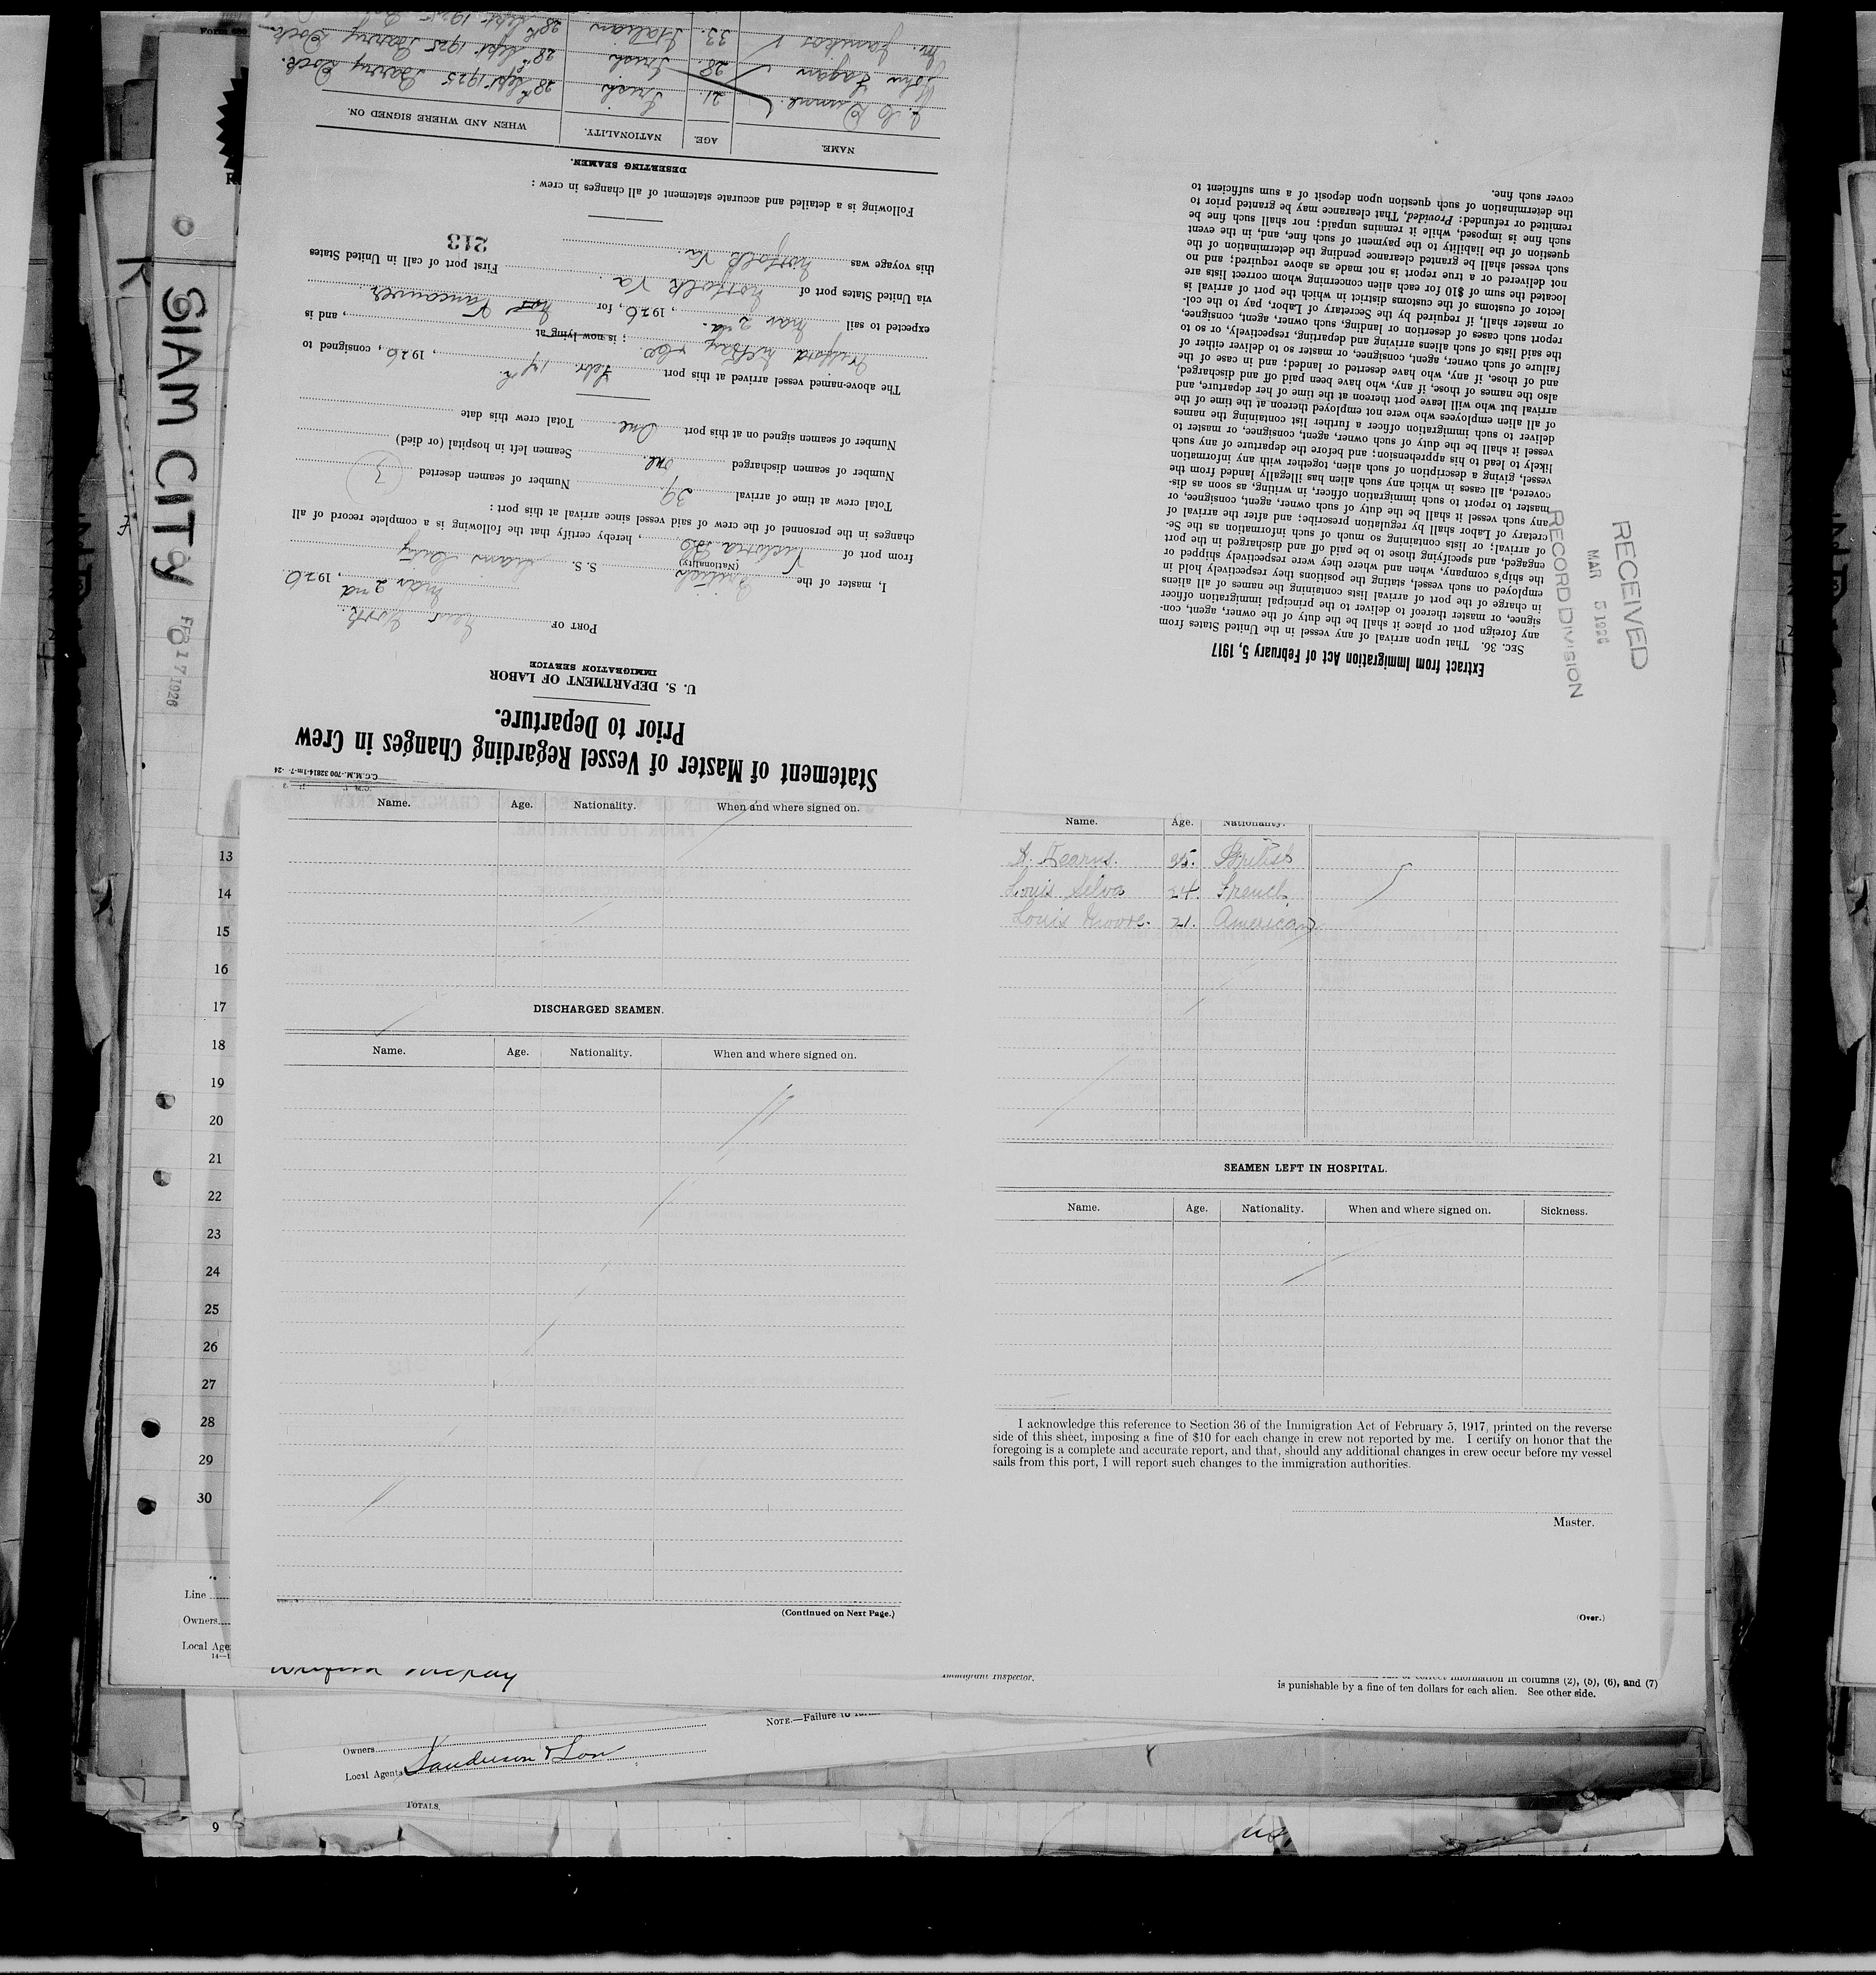 SIAM CITY
FEB 17 1926
C.G.M.M.-700 32814-1m-7- -24
Statement of Master of Vessel Regarding Changes in Crew
Prior to Departure.
U. S. DEPARTMENT OF LABOR
IMMIGRATION SERVICE
PORT OF New York.
Mar 2nd, 1926.
I, master of the British S. S. Siam City
(Nationality)
from port of Victoria BC, hereby certify that the following is a complete record of all
changes in the personnel of the crew of said vessel since arrival at this port :
Total crew at time of arrival 39 Number of seamen deserted 3
Number of seamen discharged one. Seamen left in hospital (or died)
Number of seamen signed on at this port One. Total crew this date
The above-named vessel arrived at this port Febr. 17th, 1926, consigned to
; is now lying at , and is
expected to sail Mar 2nd., 1926, for Vancouver.
via United States port of Norfolk Va. First port of call in United States
this voyage was Norfolk Va.
213
Following is a detailed and accurate statement of all changes in crew :
DESERTING SEAMEN.
NAME. AGE. NATIONALITY. WHEN AND WHERE SIGNED ON.
21. Irish 28th Sept 1925 Barry Dock.
John Fagan 28. Irish 28th Sept 1925 Barry Dock
33. Italian 28th Sept 1925
Extract from Immigration Act of February 5, 1917
SEC. 36. That upon arrival of any vessel in the United States from
any foreign port or place it shall be the duty of the owner, agent, con-
signee, or master thereof to deliver to the principal immigration officer
in charge of the port of arrival lists containing the names of all aliens
employed on such vessel, stating the positions they respectively hold in
the ship's company, when and where they were respectively shipped or
engaged, and specifying those to be paid off and discharged in the port
of arrival; or lists containing so much of such information as the Se-
cretary of Labor shall by regulation prescribe; and after the arrival of
any such vessel it shall be the duty of such owner, agent, consignee, or
master to report to such immigration officer, in writing, as soon as dis-
covered, all cases in which any such alien has illegally landed from the
vessel, giving a description of such alien, together with any information
likely to lead to his apprehension; and before the departure of any such
vessel it shall be the duty of such owner, agent, consignee, or master to
deliver to such immigration officer a further list containing the names
of all alien employees who were not employed thereon at the time of the
arrival but who will leave port thereon at the time of her departure, and
also the names of those, if any, who have been paid off and discharged,
and of those, if any, who have deserted or landed; and in case of the
failure of such owner, agent, consignee, or master so to deliver either of
the said lists of such aliens arriving and departing, respectively, or so to
report such cases of desertion or landing, such owner, agent, consignee,
or master shall, if required by the Secretary of Labor, pay to the col-
lector of customs of the customs district in which the port of arrival is
located the sum of $10 for each alien concerning whom correct lists are
not delivered or a true report is not made as above required; and no
such vessel shall be granted clearance pending the determination of the
question of the liability to the payment of such fine, and, in the event
such fine is imposed, while it remains unpaid; nor shall such fine be
remitted or refunded: Provided, That clearance may be granted prior to
the determination of such question upon deposit of a sum sufficient to
cover such fine.
RECEIVED
MAR 5 1926
RECORD DIVISION
Name. Age. Nationality. When and where signed on.
DISCHARGED SEAMEN.
Name. Age. Nationality. When and where signed on.
(Continued on Next Page.)
Name. Age. Nationality.
A. Kearns. 35. British
Louis Selva 24. French
Louis Moore. 21. American
SEAMEN LEFT IN HOSPITAL.
Name. Age. Nationality. When and where signed on. Sickness.
I acknowledge this reference to Section 36 of the Immigration Act of February 5, 1917, printed on the reverse
side of this sheet, imposing a fine of $10 for each change in crew not reported by me. I certify on honor that the
foregoing is a complete and accurate report, and that, should any additional changes in crew occur before my vessel
sails from this port, I will report such changes to the immigration authorities.
Master.
(Over.)
13
14
15
16
17
18
19
20
21
22
23
24
25
26
27
28
29
30
Line
Owners
Local Age
Immigrant Inspector.
correct information in columns (2), (5), (6), and (7)
is punishable by a fine of ten dollars for each alien. See other side.
NOTE.—Failure to
Owners
Local Agents Sanderson & Son
TOTALS,
9